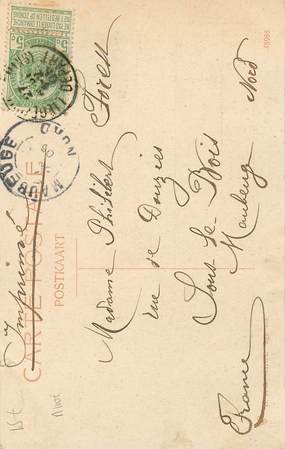 NE PAS LIVRER LE DIMANCHE
NIET BESTELLEN OP ZONDAG
5c
5c
MAUBEUGE
NORD
Imprimé
CARTE POSTALE
POSTKAART
Forest
Madame Philibert
rue de Douzies
Sous-le-Bois
Maubeuge
Nord
France